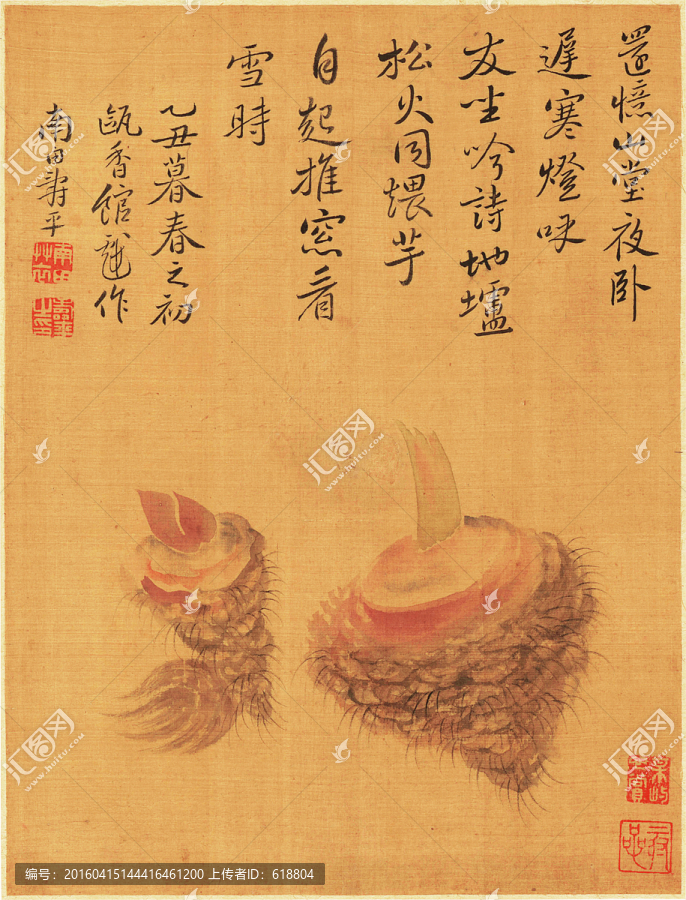 還憶山堂夜卧
遲寒燈呼
友坐吟詩地壚
松火同煨芋
自起推窓看
雪時
乙丑暮春之初
甌香館戲作
南田壽平
汇图网
www.huitu.com
编号：20160415144416461200 上传者ID：618804